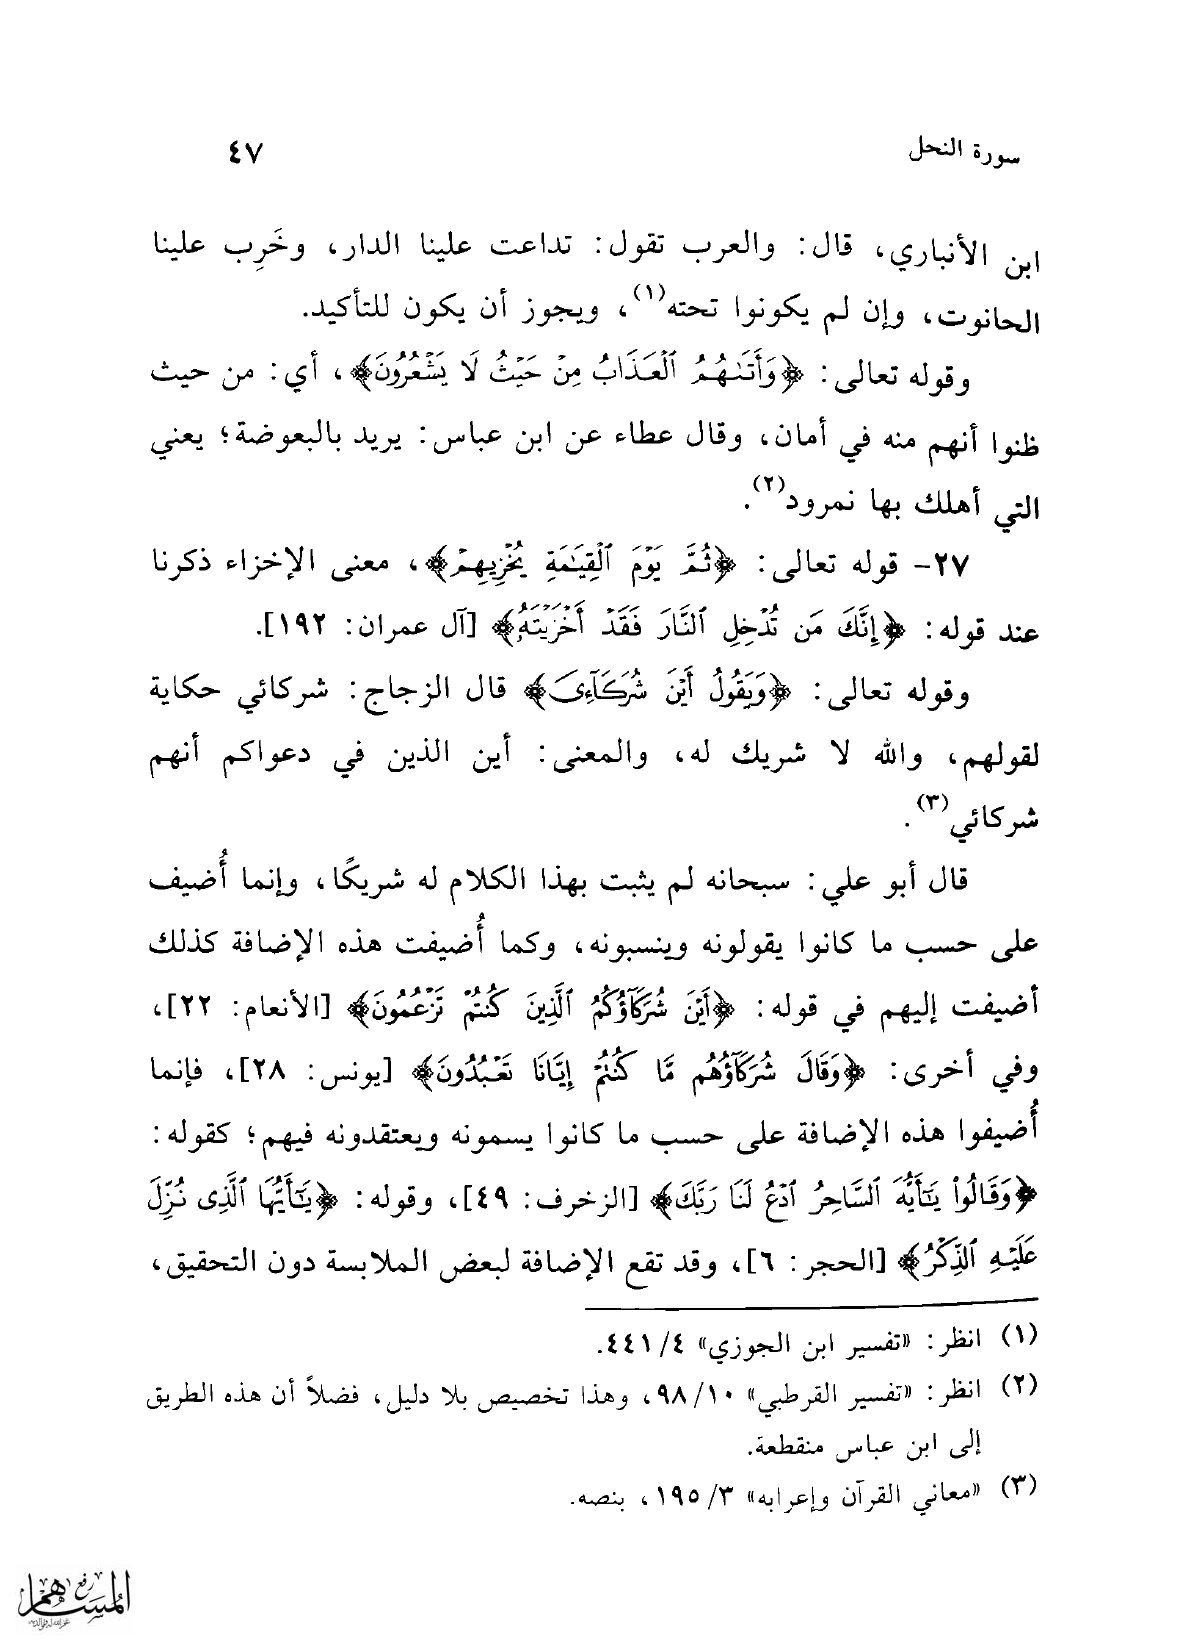 سورة النحل ٤٧
ابن الأنباري، قال: والعرب تقول: تداعت علينا الدار، وخَرِب علينا
الحانوت، وإن لم يكونوا تحته(١)، ويجوز أن يكون للتأكيد.
وقوله تعالى: ﴿وَأَتَىٰهُمُ ٱلْعَذَابُ مِنْ حَيْثُ لَا يَشْعُرُونَ﴾، أي: من حيث
ظنوا أنهم منه في أمان، وقال عطاء عن ابن عباس: يريد بالبعوضة؛ يعني
التي أهلك بها نمرود(٢).
٢٧- قوله تعالى: ﴿ثُمَّ يَوْمَ ٱلْقِيَٰمَةِ يُخْزِيهِمْ﴾، معنى الإخزاء ذكرنا
عند قوله: ﴿إِنَّكَ مَن تُدْخِلِ ٱلنَّارَ فَقَدْ أَخْزَيْتَهُۥ﴾ [آل عمران: ١٩٢].
وقوله تعالى: ﴿وَيَقُولُ أَيْنَ شُرَكَآءِىَ﴾ قال الزجاج: شركائي حكاية
لقولهم، والله لا شريك له، والمعنى: أين الذين في دعواكم أنهم
شركائي(٣).
قال أبو علي: سبحانه لم يثبت بهذا الكلام له شريكًا، وإنما أُضيف
على حسب ما كانوا يقولونه وينسبونه، وكما أُضيفت هذه الإضافة كذلك
أضيفت إليهم في قوله: ﴿أَيْنَ شُرَكَآؤُكُمُ ٱلَّذِينَ كُنتُمْ تَزْعُمُونَ﴾ [الأنعام: ٢٢]،
وفي أخرى: ﴿وَقَالَ شُرَكَآؤُهُم مَّا كُنتُمْ إِيَّانَا تَعْبُدُونَ﴾ [يونس: ٢٨]، فإنما
أُضيفوا هذه الإضافة على حسب ما كانوا يسمونه ويعتقدونه فيهم؛ كقوله:
﴿وَقَالُوا۟ يَٰٓأَيُّهَ ٱلسَّاحِرُ ٱدْعُ لَنَا رَبَّكَ﴾ [الزخرف: ٤٩]، وقوله: ﴿يَٰٓأَيُّهَا ٱلَّذِى نُزِّلَ
عَلَيْهِ ٱلذِّكْرُ﴾ [الحجر: ٦]، وقد تقع الإضافة لبعض الملابسة دون التحقيق،
(١) انظر: «تفسير ابن الجوزي» ٤/ ٤٤١.
(٢) انظر: «تفسير القرطبي» ١٠/ ٩٨، وهذا تخصيص بلا دليل، فضلاً أن هذه الطريق
إلى ابن عباس منقطعة.
(٣) «معاني القرآن وإعرابه» ٣/ ١٩٥، بنصه.
رفع
المساهم